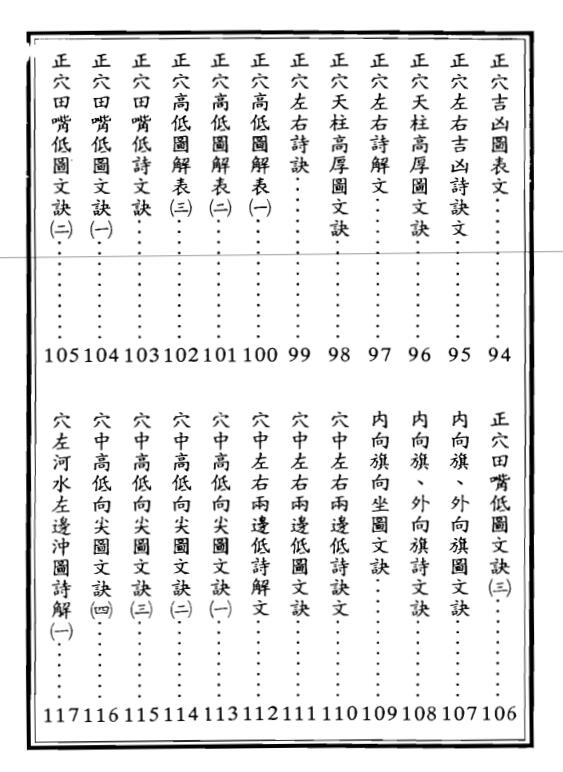 正穴吉凶圖表文……………94
正穴左右吉凶詩訣文……………95
正穴天柱高厚圖文訣……………96
正穴左右詩解文……………97
正穴天柱高厚圖文訣……………98
正穴左右詩訣……………99
正穴高低圖解表㈠……………100
正穴高低圖解表㈡……………101
正穴高低圖解表㈢……………102
正穴田嘴低詩文訣……………103
正穴田嘴低圖文訣㈠……………104
正穴田嘴低圖文訣㈡……………105
正穴田嘴低圖文訣㈢……………106
內向旗、外向旗圖文訣……………107
內向旗、外向旗詩文訣……………108
內向旗向坐圖文訣……………109
穴中左右兩邊低詩訣文……………110
穴中左右兩邊低圖文訣……………111
穴中左右兩邊低詩解文……………112
穴中高低向尖圖文訣㈠……………113
穴中高低向尖圖文訣㈡……………114
穴中高低向尖圖文訣㈢……………115
穴中高低向尖圖文訣㈣……………116
穴左河水左邊沖圖詩解㈠……………117